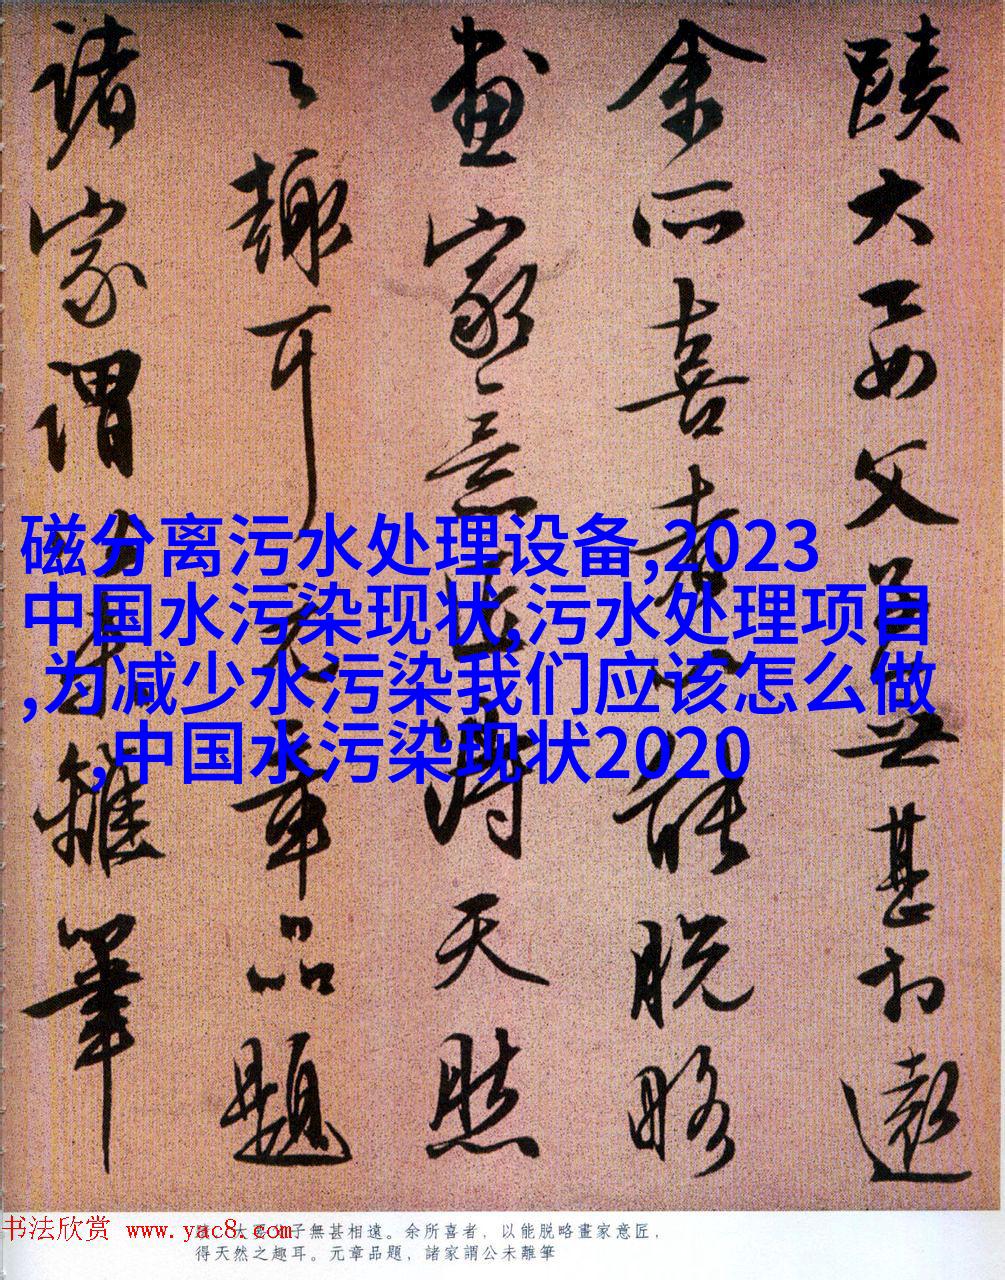 蹟大要父子無甚相遠
余所喜者以能脱略
畫家意匠得天然
之趣耳元章品題
諸家謂公未離筆
磁分离污水处理设备,2023
中国水污染现状,污水处理项目
,为减少水污染我们应该怎么做
,中国水污染现状2020
蹟。大要父子無甚相遠。余所喜者，以能脱略畫家意匠，
得天然之趣耳。元章品題，諸家謂公未離筆
书法欣赏 www.yac8.com